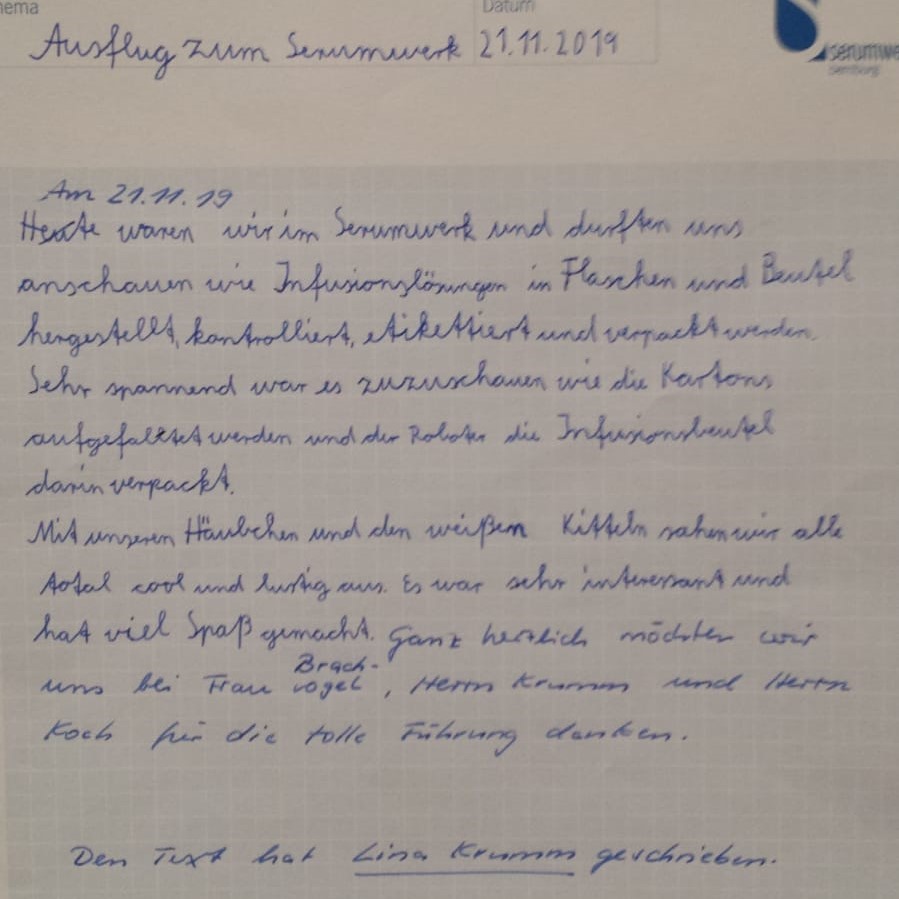 Thema
Datum
Ausflug zum Serumwerk 21.11.2019
serumwe
Bernburg
Am 21.11.19
Heute waren wir im Serumwerk und durften uns
anschauen wie Infusionslösungen in Flaschen und Beutel
hergestellt, kontrolliert, etikettiert und verpackt werden.
Sehr spannend war es zuzuschauen wie die Kartons
aufgefaltet werden und der Roboter die Infusionsbeutel
darin verpackt.
Mit unseren Häubchen und den weißen Kitteln sahen wir alle
total cool und lustig aus. Es war sehr interessant und
hat viel Spaß gemacht. Ganz herzlich möchten wir
uns bei Frau Brach-
vogel, Herrn Krumm und Herrn
Koch für die tolle Führung danken.
Den Text hat Lina Krumm geschrieben.